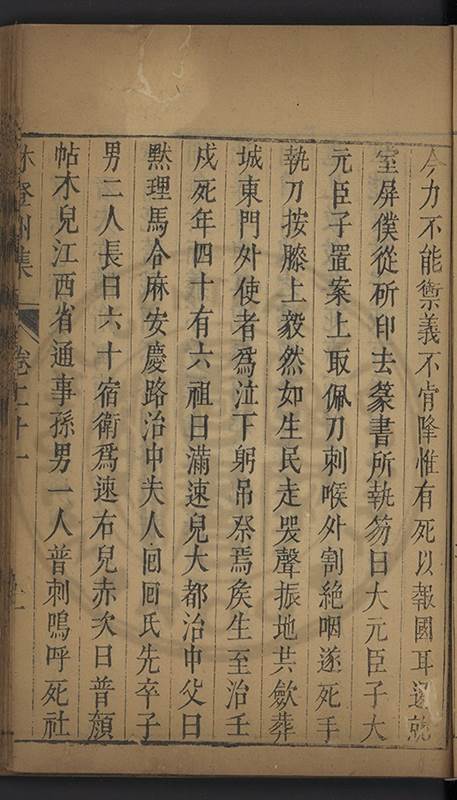 今力不能禦義不肯降惟有死以報國耳遂就
室屏僕從斫印去篆書所執笏曰大元臣子大
元臣子置案上取佩刀刺喉外割絕咽遂死手
執刀按膝上毅然如生民走哭聲振地共歛葬
城東門外使者為泣下躬吊祭焉矦生至治壬
戍死年四十有六祖曰滿速兒大都治中父曰
黙理馬合麻安慶路治中夫人回回氏先卒子
男二人長曰六十宿衛為速右兒赤次曰普顏
帖木兒江西省通事孫男一人普刺嗚呼死社
林登州集 卷二十一